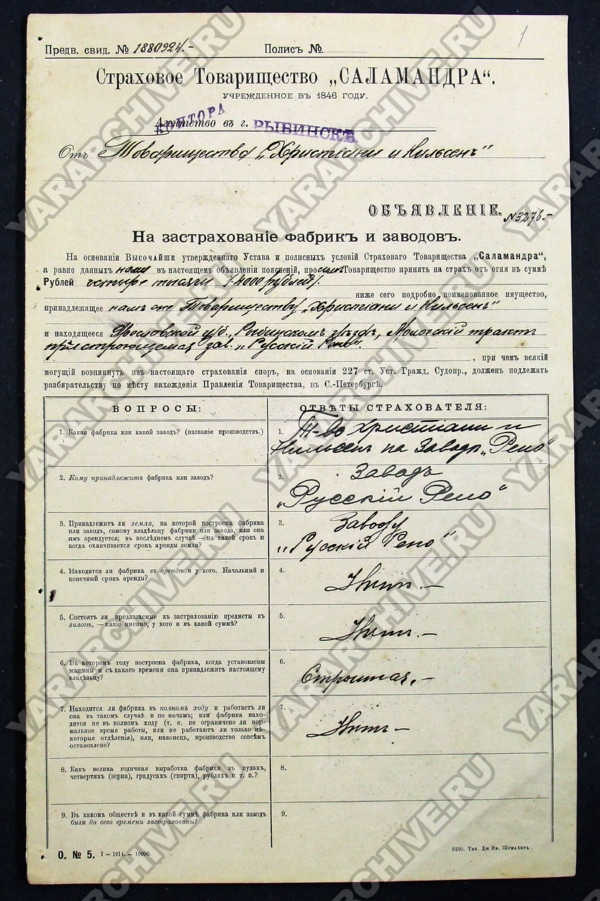 1
Предв. свид. № 1880924.- Полисъ №
Страховое Товарищество „САЛАМАНДРА“.
УЧРЕЖДЕННОЕ ВЪ 1846 ГОДУ.
КОНТОРА
Агентство въ г. РЫБИНСКѢ
Отъ Товарищества „Христіани и Нильсенъ“
ОБЪЯВЛЕНІЕ. №3276.-
На застрахованіе фабрикъ и заводовъ.
На основаніи Высочайше утвержденнаго Устава и полисныхъ условій Страховаго Товарищества „Саламандра“,
а равно данныхъ нами въ настоящемъ объявленіи поясненій, просимъ Товарищество принять на страхъ отъ огня въ суммѣ
Рублей четыре тысячи (4000 рублей)
ниже сего подробно поименованное имущество,
принадлежащее намъ Товариществу „Христіани и Нильсенъ“
и находящееся Ярославской губ., Рыбинскомъ уѣздѣ, Мологскій трактъ
при строющемся зав. „Русскій Рено“
, при чемъ всякій
могущій возникнуть изъ настоящаго страхованія споръ, на основаніи 227 ст. Уст. Гражд. Судопр., долженъ подлежать
разбирательству по мѣсту нахожденія Правленія Товарищества, въ С.-Петербургѣ.
ВОПРОСЫ: ОТВѢТЫ СТРАХОВАТЕЛЯ:
1. Какая фабрика или какой заводъ? (названіе производствъ.) 1. Т-во Христіани и
Нильсенъ на Заводѣ „Рено“
2. Кому принадлежитъ фабрика или заводъ? 2. Заводъ
„Русскій Рено“
3. Принадлежитъ ли земля, на которой построена фабрика 3. Заводу
или заводъ, самому владѣльцу фабрики или завода, или она
имъ арендуется; въ послѣднемъ случаѣ — на какой срокъ и „Русскій Рено“
когда оканчивается срокъ аренды земли?
4. Находится ли фабрика въ арендѣ и у кого. Начальный и 4.
конечный срокъ аренды? Нѣтъ.-
5. Состоятъ ли предлагаемые къ застрахованію предметы въ 5.
залогѣ, —какіе именно, у кого и въ какой суммѣ? Нѣтъ.-
6. Въ которомъ году построена фабрика, когда установлены 6.
машины и съ какого времени она принадлежитъ настоящему Строится.-
владѣльцу?
7. Находится ли фабрика въ полномъ ходу и работаетъ ли 7.
она въ такомъ случаѣ и по ночамъ; или фабрика нахо-
дится не въ полномъ ходу (т. е. не ограничено ли нор- Нѣтъ.-
мальное время работы, или не работаютъ ли только нѣ-
которыя отдѣленія), или, наконецъ, производство совсѣмъ
остановлено?
8. Какъ велика годичная выработка фабрики въ пудахъ, 8.
четвертяхъ (зерна), градусахъ (спирта), рубляхъ и т. п.?
9. Въ какомъ обществѣ и въ какой суммѣ фабрика или заводъ 9.
были до сего времени застрахованы?
О. № 5. I—1914.—10000. Тип. Дм. Ив. Шемякеръ.
YARARCHIVE.RU